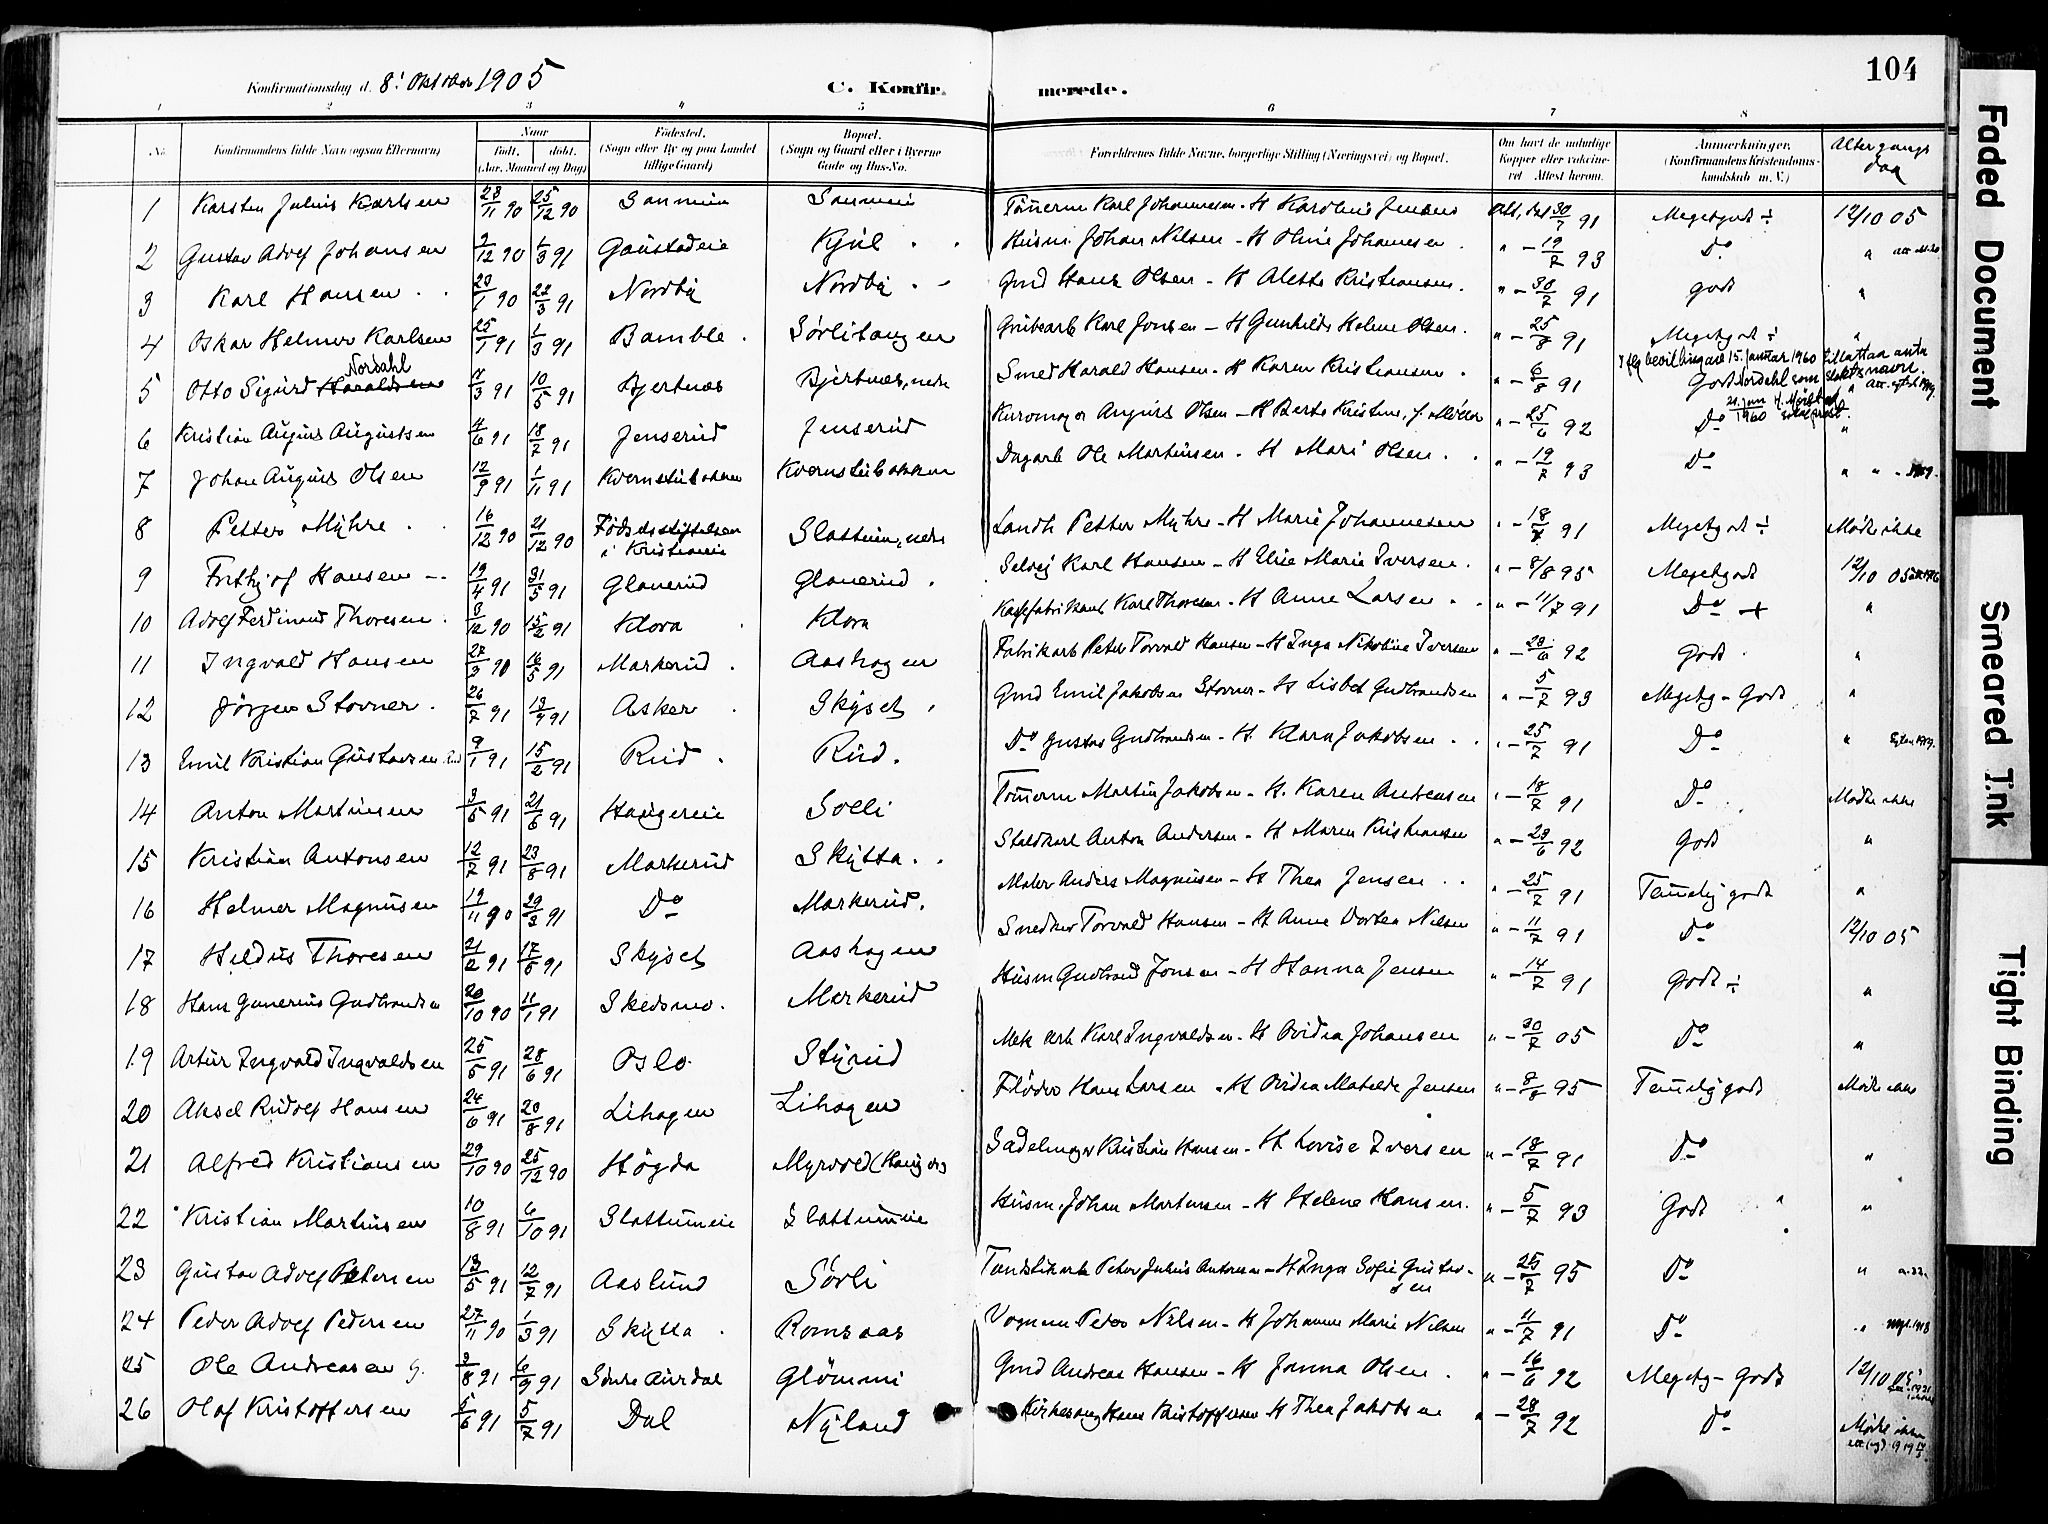 104
Konfirmationsdag d. 8' Oktober 1905 C. Konfirmerede.
1 2 3 4 5 6 7 8
No. Konfirmandens fulde Navn (ogsaa Efternavn) Naar født. døbt. (Aar, Maaned og Dag) Fødested. (Sogn eller By og paa Landet tillige Gaard) Bopæl. (Sogn og Gaard eller i Byerne Gade og Hus-No. Forældrenes fulde Navne, borgerlige Stilling (Næringsvei) og Bopæl. Om havt de naturlige Kopper eller vaccineret Attest herom. Anmerkninger. (Konfirmandens Kristendomskundskab m. V.) Altergangs dag
1 Karsten Julius Karlsen 28/11 90 25/12 90 Tømerm Karl Johannesen - H Karoline Jensen Att. 30/7 91 Megetgodt ÷ 12/10 05
2 Gustav Adolf Johansen 9/12 90 1/3 91 Gaustadeie Kjül Husm. Johan Nilsen - H Oline Johannesen " - 19/7 93 Do "
3 Karl Hansen 20/1 90 22/3 91 Nordby Nordby Grd Hans Olsen - H Alette Kristiansen " - 30/7 91 godt "
4 Oskar Helmer Karlsen 25/1 91 1/3 91 Bamble Sørlitangen Grubearb Karl Jonsen - H Gunhilde Helene Olsen " - 25/8 91 Megetgodt ÷ "
Iflg bevilling av 15. januar 1960 tillattes anta Nordahl som slektsnavn.
5 Otto Sigurd Haraldsen Nordahl 7/3 91 10/5 91 Bjertnæs Bjertnæs, nedre Smed Harald Hansen - H Karen Kristiansen " - 6/8 91 Godt "
6 Kristian August Augustsen 4/6 91 18/7 91 Jenserud Jenserud Kurvmager August Olsen - H Berte Kristine, f. Møller " - 25/6 92 Do "
7 Johan August Olsen 12/9 91 1/11 91 Kvernstubakken Kvernstubakken Dagarb Ole Martinsen - H Mari Olsen " - 19/7 93 Do "
8 Petter Myhre 16/12 90 21/12 90 Fødselsstiftelsen i Kristiania Slattum, nedre Landh Petter Myhre - H Marie Johannesen " - 18/7 91 Megetgodt ÷ Mødte ikke
9 Frithjof Hansen 19/4 91 31/5 91 Glanerud Glanerud Selvej Karl Hansen - H Elise Marie Iversen " - 8/8 95 Megetgodt 12/10 05
10 Adolf Ferdinand Thoresen 3/12 90 15/2 91 Klova Klova Kaffefabrikant Karl Thoresen - H Anne Larsen " - 11/7 91 Do + "
11 Ingvald Hansen 27/3 91 16/5 91 Markerud Aashagen Fabrikarb Peter Torvald Hansen - H Inga Nikoline Iversen " - 28/6 92 Godt "
12 Jørgen Stovner 26/7 91 13/9 91 Asker Skyset Grd Emil Jakobsen Stovner - H Lisbet Gudbrandsen " - 5/7 93 Megetg - Godt "
13 Emil Kristian Gustavsen Rud 9/1 91 15/2 91 Rud Rud Do Gustav Gudbrandsen - H Klara Jakobsen " - 25/7 91 Do "
14 Anton Martinsen 3/5 91 21/6 91 Haugereie Solli Tømerm Martin Jakobsen - H. Karen Andreasen " - 18/7 91 Do Mødte ikke
15 Kristian Antonsen 12/7 91 23/8 91 Markerud Skytta Staldkarl Anton Andersen - H Maren Kristiansen " - 28/6 92 Godt "
16 Helmer Magnusen 19/11 90 29/3 91 Do Markerud Maler Anders Magnusen - H Thea Jensen " - 25/7 91 Temelig godt "
17 Heldius Thoresen 21/2 91 17/5 91 Skyset Aashagen Snedker Torvald Hansen - H Anne Dortea Nilsen " - 11/7 91 Do 12/10 05
18 Hans Gunerius Gudbrandsen 20/10 90 11/1 91 Skedsmo Markerud Husm Gudbrand Jonsen - H Hanna Jensen " - 14/7 91 Godt ÷ "
19 Artur Ingvald Ingvaldsen 25/5 91 28/6 91 Oslo Styrud Mek arb Karl Ingvaldsen - H Ovidia Johansen " - 30/7 05 Do "
20 Aksel Rudolf Hansen 24/6 91 20/8 91 Lihagen Lihagen Fløder Hans Larsen - H Ovidia Matilde Jensen " - 8/8 95 Temelig godt Mødte ikke
21 Alfred Kristiansen 29/10 90 25/12 90 Høgda Myrvold Sadelmager Kristian Hansen - H Lovise Iversen " - 18/7 91 Do "
22 Kristian Martinsen 10/8 91 6/10 91 Slattumeie Slattumeie Husm. Johan Martinsen - H Helene Hansen " - 5/7 93 Godt "
23 Gustav Adolf Petersen 13/5 91 12/7 91 Aaslund Sørli Peter Julius Antonsen - H Inga Sofie Gustavsen " - 25/7 95 Do "
24 Peder Adolf Pedersen 27/11 90 1/3 91 Skytta Romsaas Vognm Peder Nilsen - H Johanne Marie Nilsen " - 11/7 91 Do "
25 Ole Andreasen G. 3/8 91 6/9 91 Søndre Aurdal Glømmi Grd Andreas Hansen - H Janna Olsen " - 16/6 92 Megetg - Godt 12/10 05
26 Olaf Kristoffersen 5/6 91 5/7 91 Dal Nyland Kirkesang Hans Kristoffersen - H Thea Jakobsen " - 28/7 92 Do Mødte ikke
Faded Document
Smeared Ink
Tight Binding